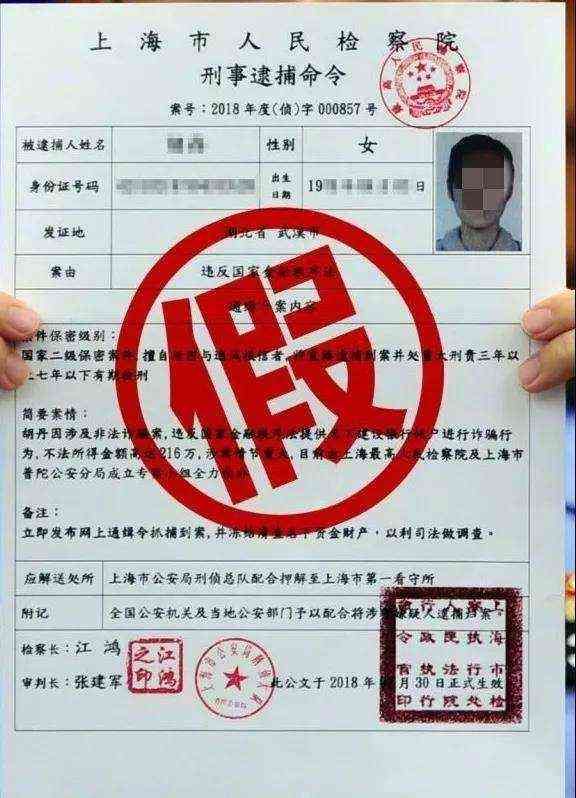 上海市人民检察院
刑事逮捕命令
案号：2018年度(侦)字000857号
被逮捕人姓名 性别 女
身份证号码 出生日期 19 日
发证地 湖北省 武汉市
案由 违反国家金融秩序法
通缉 案内容
案件保密级别：
国家二级保密案件,擅自
七年以下有期徒刑
简要案情：
胡丹因涉及非法诈骗案,违反国家金融秩序法提供名下建设银行账户进行诈骗行
为,不法所得金额高达216万,涉案情节重大,目前由上海最高人民检察院及上海市
普陀公安分局成立专案小组全力侦办
备注：
立即发布网上通缉令抓捕到案,并冻结清查名下资金财产，以利司法做调查。
应解送处所 上海市公安局刑侦总队配合押解至上海市第一看守所
附记 全国公安机关及当地公安部门予以配合将涉案嫌疑人逮捕归案。
检察长：江鸿
审判长：张建军 此公文于2018年 月30日正式生效
江鸿之印
假